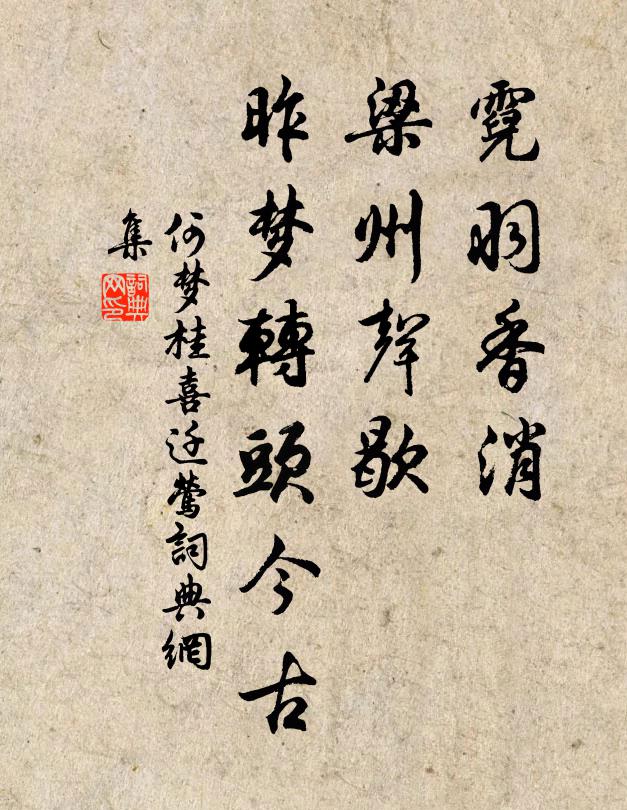 霓羽香消
梁州聲歇
昨梦轉頭今古
何梦桂喜迁鶯詞典網
集
詞典
网印